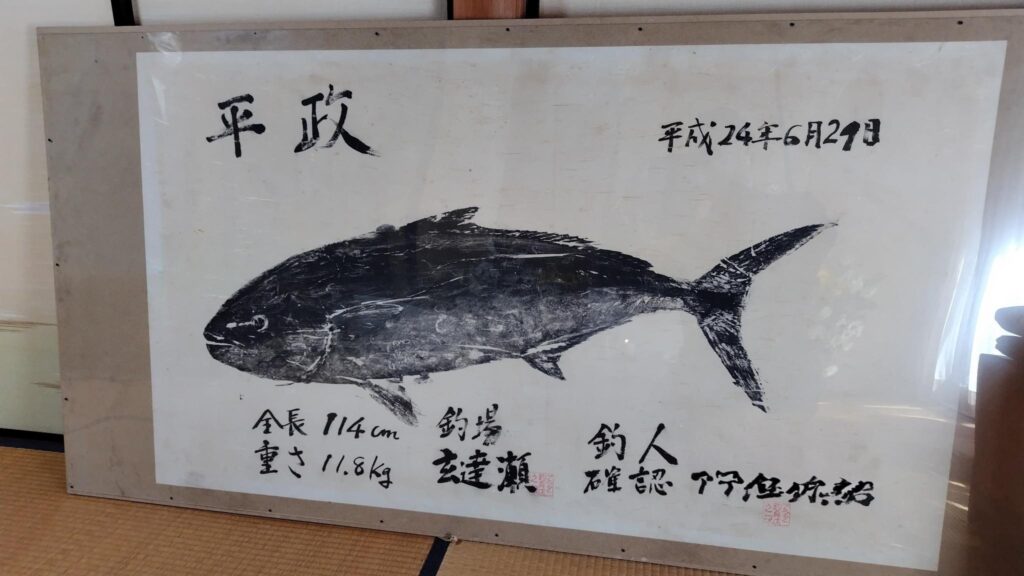 平政
平成24年6月29日
全長 114cm
重さ 11.8kg
釣場
玄達瀬
釣人
確認